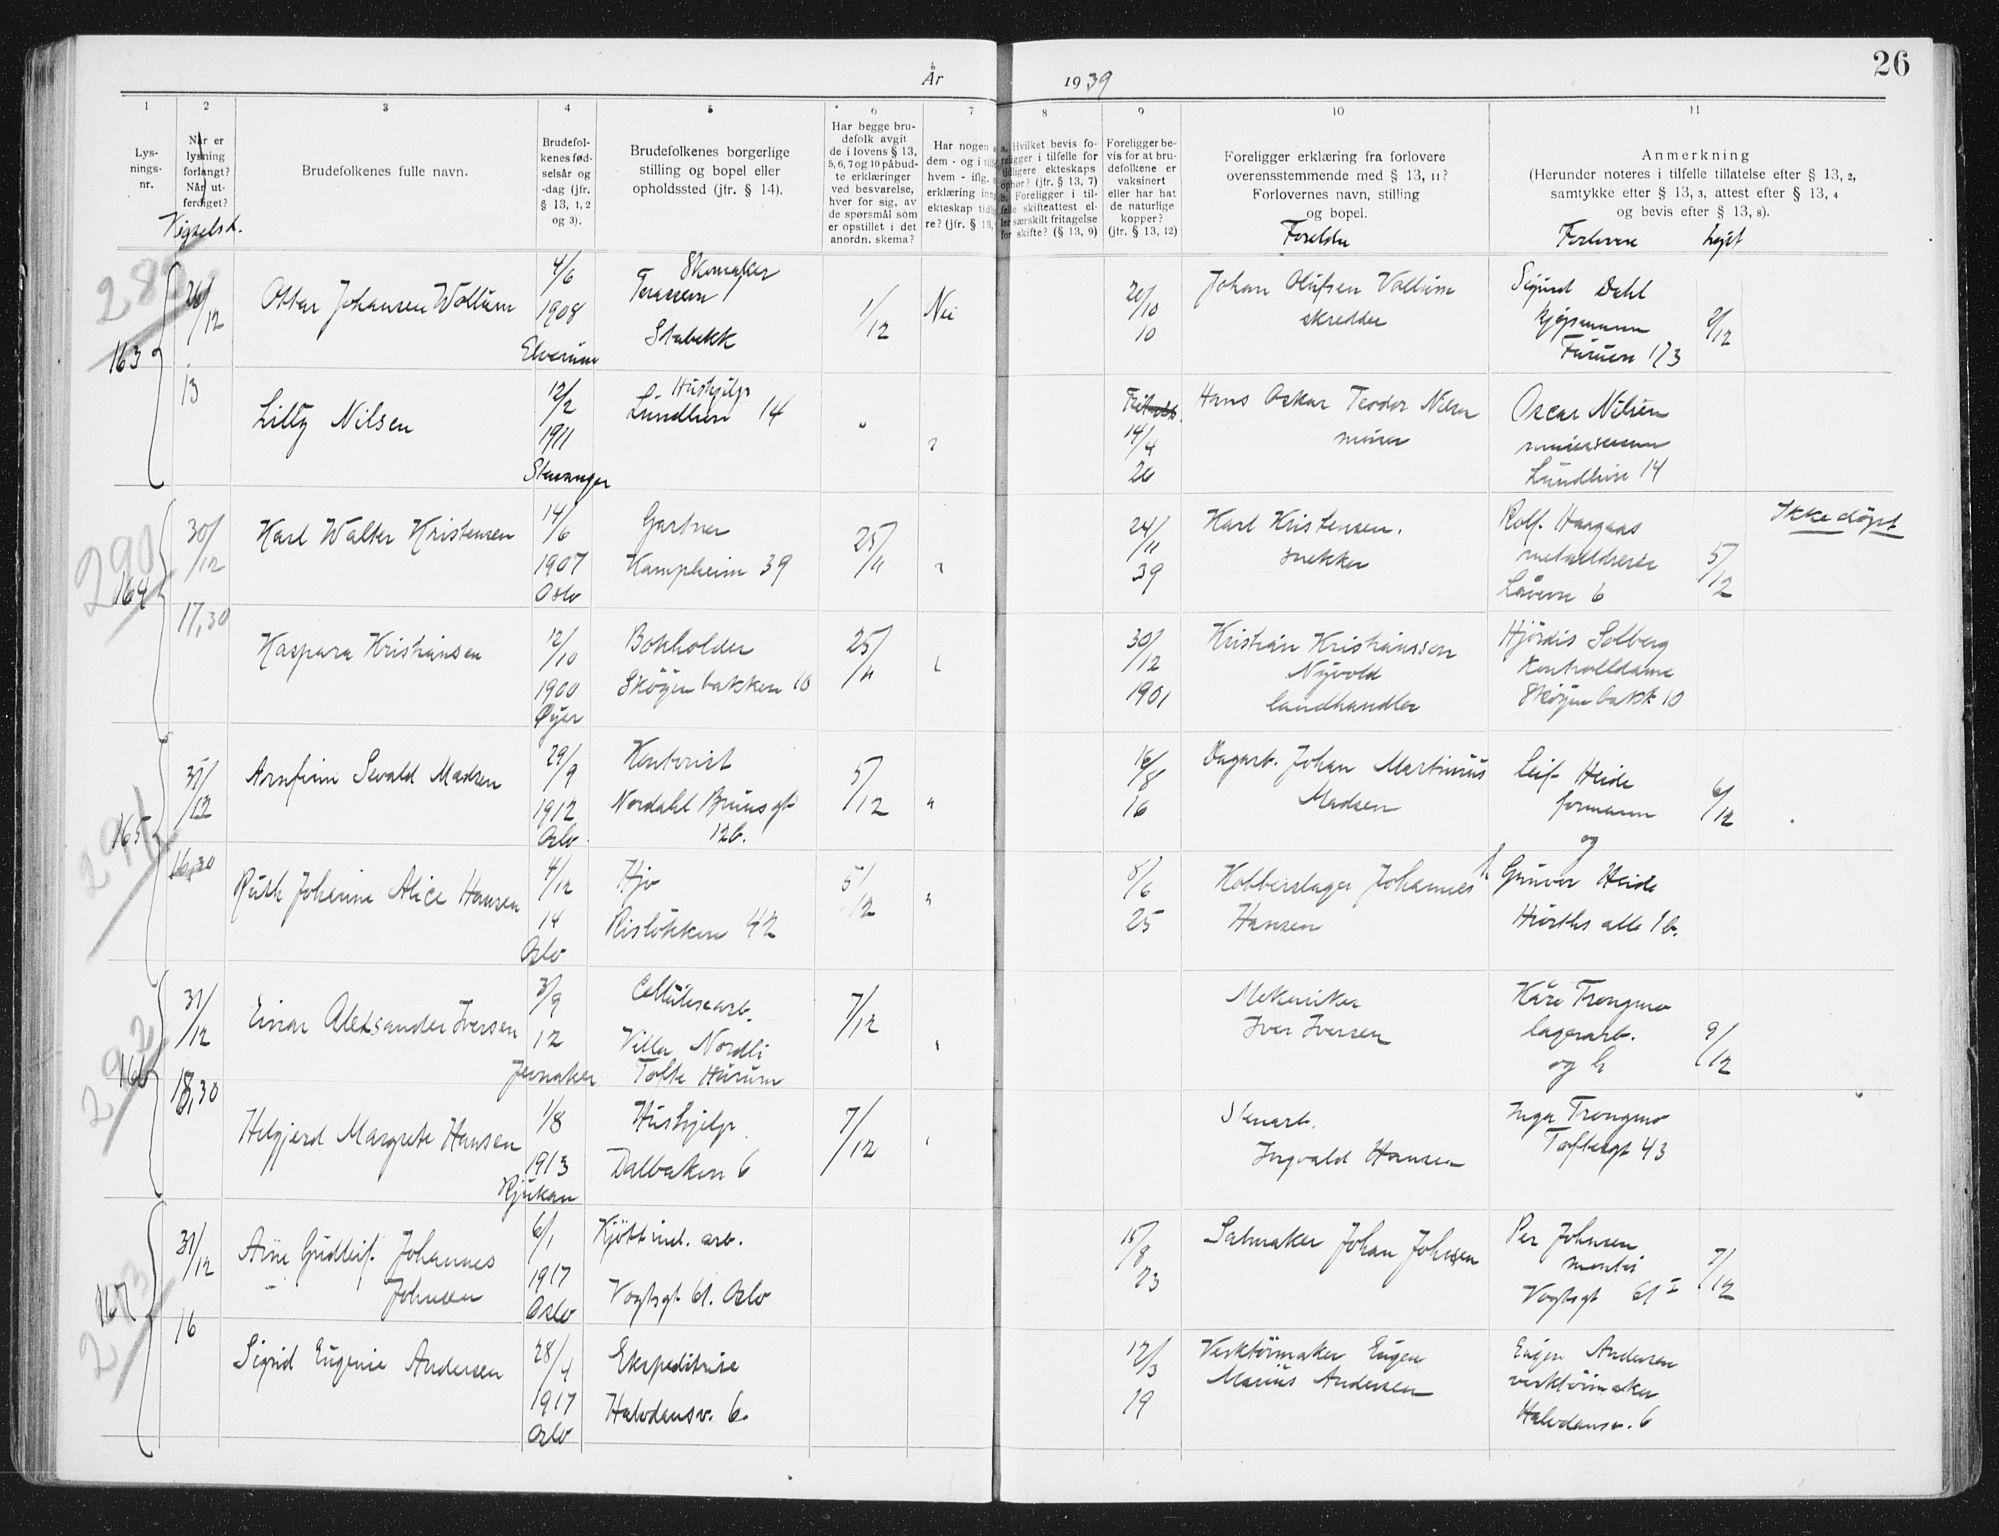 26
År 1939
1 2 3 4 5 6 7 8 9 10 11
Lys-
nings-
nr.
Når er
lysning
forlangt?
Når ut-
ferdiget?
Vigselsd.
Brudefolkenes fulle navn.
Brudefol-
kenes fød-
selsår og
-dag (jfr.
§ 13, 1, 2
og 3).
Brudefolkenes borgerlige
stilling og bopel eller
opholdssted (jfr. § 14).
Har begge bru-
defolk avgit
de i lovens § 13,
5, 6, 7 og 10 påbud-
te erklæringer
ved besvarelse,
hver for sig, av
de spørsmål som
er opstillet i det
anordn. skema?
Har nogen
dem - og i
hvem - iflg.
erklæring
ekteskap
re? (jfr. § 13,
Hvilket bevis fo-
religger i tilfelle for
tidligere ekteskaps
ophør? (jfr. § 13, 7)
b. Foreligger i til-
felle skifteattest el-
ler særskilt fritagelse
for skifte? (§ 13, 9)
Foreligger be-
vis for at bru-
defolkene er
vaksinert
eller har hat
de naturlige
kopper?
(jfr. § 13, 12)
Foreligger erklæring fra forlovere
overensstemmende med § 13, 11?
Forlovernes navn, stilling
og bopel.
Foreldre
Anmerkning
(Herunder noteres i tilfelle tillatelse efter § 13, 2,
samtykke efter § 13, 3, attest efter § 13, 4
og bevis efter § 13, 8).
Forlovere lyst
163
26/12
13
Ottar Johansen Wollum
4/6
1908
Elverum
Skomaker
Terassen
Stabekk
1/12
Nei
20/10
10
Johan Olufsen Vollum
skredder
Sigurd Dahl
kjøpmann
Furuen 173
2/12
Lilly Nilsen
12/2
1911
Stavanger
Hushjelp
Lundlien 14
"
"
14/4
26
Hans Oskar Teodor Nilsen
murer
Oscar Nilsen
Lundlien 14
290
164
30/12
17,30
Karl Walter Kristensen
14/6
1907
Oslo
Gartner
Kampheim 39
25/11
"
24/11
39
Karl Kristensen.
snekker
Rolf Haagaas
metalldreier
Låven 6
5/12
Ikke døpt
Kaspara Kristiansen
12/10
1900
Øyer
Bokholder
Skøyenbakken 10
25/11
"
30/12
1901
Kristian Kristianssen
Nyvold
landhandler
Hjördis Solberg
Kontrolldame
Skøyenbakk 10
291
165
31/12
16,30
Arnfinn Sevald Madsen
29/9
1912
Oslo.
Kontorist
Nordahl Brunsgt
12b.
5/12
"
16/8
16
Vognarb. Johan Martinius
Madsen
Leif Heide
formann
og
6/12
Ruth Johanne Alice Hansen
4/12
14
Oslo
Hjv
Risløkken 42
5/12
"
8/6
25
Kobberslager Johannes
Hansen
Gunvor Heide
Hürths alle 1b.
292
166
31/12
18,30
Einar Aleksander Iversen
3/9
12
Jevnaker
Cellulosearb.
Villa Nordli
Tofte Hurum
7/12
"
Mekaniker
Iver Iversen
Kåre Trengmo
lagerarb.
og h
9/12
Helgjerd Margrete Hansen
1/8
1913
Rjukan
Hushjelp
Dalbakken 6
7/12
"
Stenarb.
Ingvald Hansen
Inga Trengmo
Toftesgt 43
293
167
31/12
16
Arne Gudleif Johannes
Johnsen
6/1
1917
Oslo
Kjøttind. arb.
Vogtsgt 61. Oslo
15/8
23
Salmaker Johan Johnsen
Per Johnsen
montør
Vogtsgt 61 I
7/12
Sigrid Eugenie Andersen
28/4
1917
Oslo
Ekspeditrise
Halvdansv. 6.
12/3
19
Verktøimaker Eugen
Marius Andersen
Eugen Andersen
verktøimaker
Halvdansv. 6